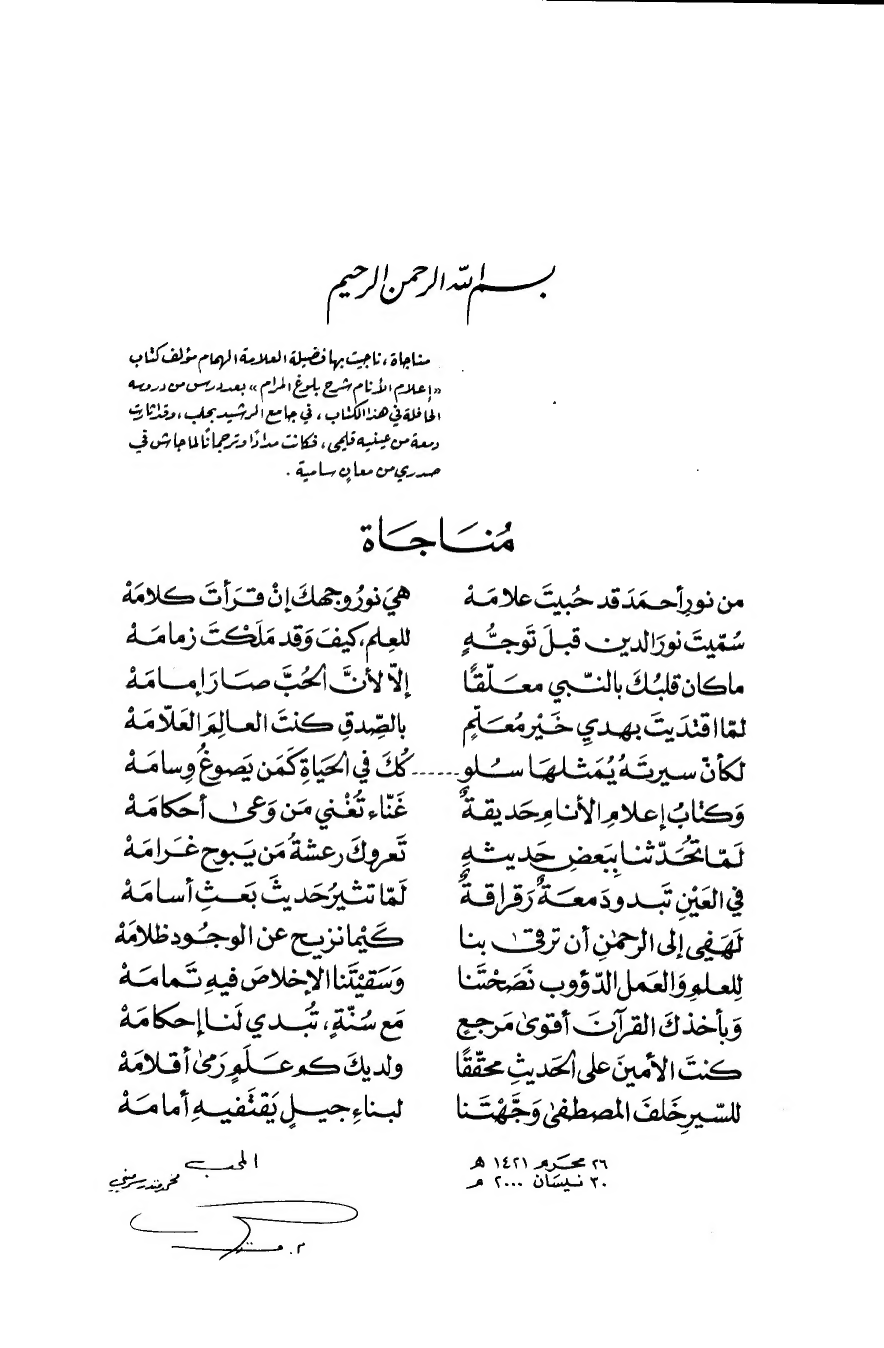 بسم الله الرحمن الرحيم
مناجاة، ناجيت بها فضيلة العلامة الهمام مؤلف كتاب
«إعلام الأنام شرح بلوغ المرام» بعد درس من دروسه
الحافلة في هذا الكتاب، في جامع الرشيد بحلب، وقد أثارت
دمعة من عينيه قلمي، فكانت مدادًا وترجمانًا لما جاش في
صدري من معانٍ سامية.
مُنَاجَاة
من نورِ أحمَدَ قد حُبيتَ علامَهْ هيَ نورُ وجهكَ إنْ قرَأتَ كلامَهْ
سُمّيتَ نورَ الدين قبلَ تَوجُّهٍ للعِلمِ، كيفَ وَقد مَلَكْتَ زمامَهْ
ما كان قلبُكَ بالنّبي معَلّقًا إلّا لأنَّ الحُبَّ صَارَ إمامَهْ
لمّا اقتدَيتَ بهديِ خَيْرِ مُعَلّمٍ بالصِّدقِ كنتَ العالِمَ العَلّامَهْ
لكأنّ سيرتَهُ يُمَثلهَا سُلو.......كُكَ في الحَيَاةِ كَمَن يَصوغُ وِسامَهْ
وَكتابُ إعلامِ الأنامِ حَديقةٌ غَنّاء تُغْني مَن وَعى أحكامَهْ
لَمّا تحُدّثنا بِبَعضِ حَديثهِ تَعروكَ رعشةُ مَن يَبوح غَرامَهْ
في العَيْنِ تَبدو دَمعَةٌ رَقراقةٌ لَمّا تثيرُ حَديثَ بَعثِ أسامَهْ
لَهَفِي إلى الرحمٰنِ أن ترقى بنا كَيْما نزيح عن الوجُود ظلامَهْ
للعلمِ وَالعملِ الدّؤوب نَصَحْتَنا وَسَقيْتَنا الإخلاصَ فيهِ تَمامَهْ
وَبأخذكَ القرآنَ أقوىٰ مَرجعٍ مَع سُنّةٍ، تُبدي لَنا إحكامَهْ
كنتَ الأمينَ على الحَديثِ محَقّقًا ولديكَ كم عَلَمٍ رَمىٰ أقلامَهْ
للسّيرِ خَلفَ المصطفىٰ وَجَّهْتَنا لبناءِ جيلٍ يَقتَفيهِ أمامَهْ
٢٦ محَرّم ١٤٢١ هـ المحب
٣٠ نيسَان ٢٠٠٠ م محمد منذر سرميني